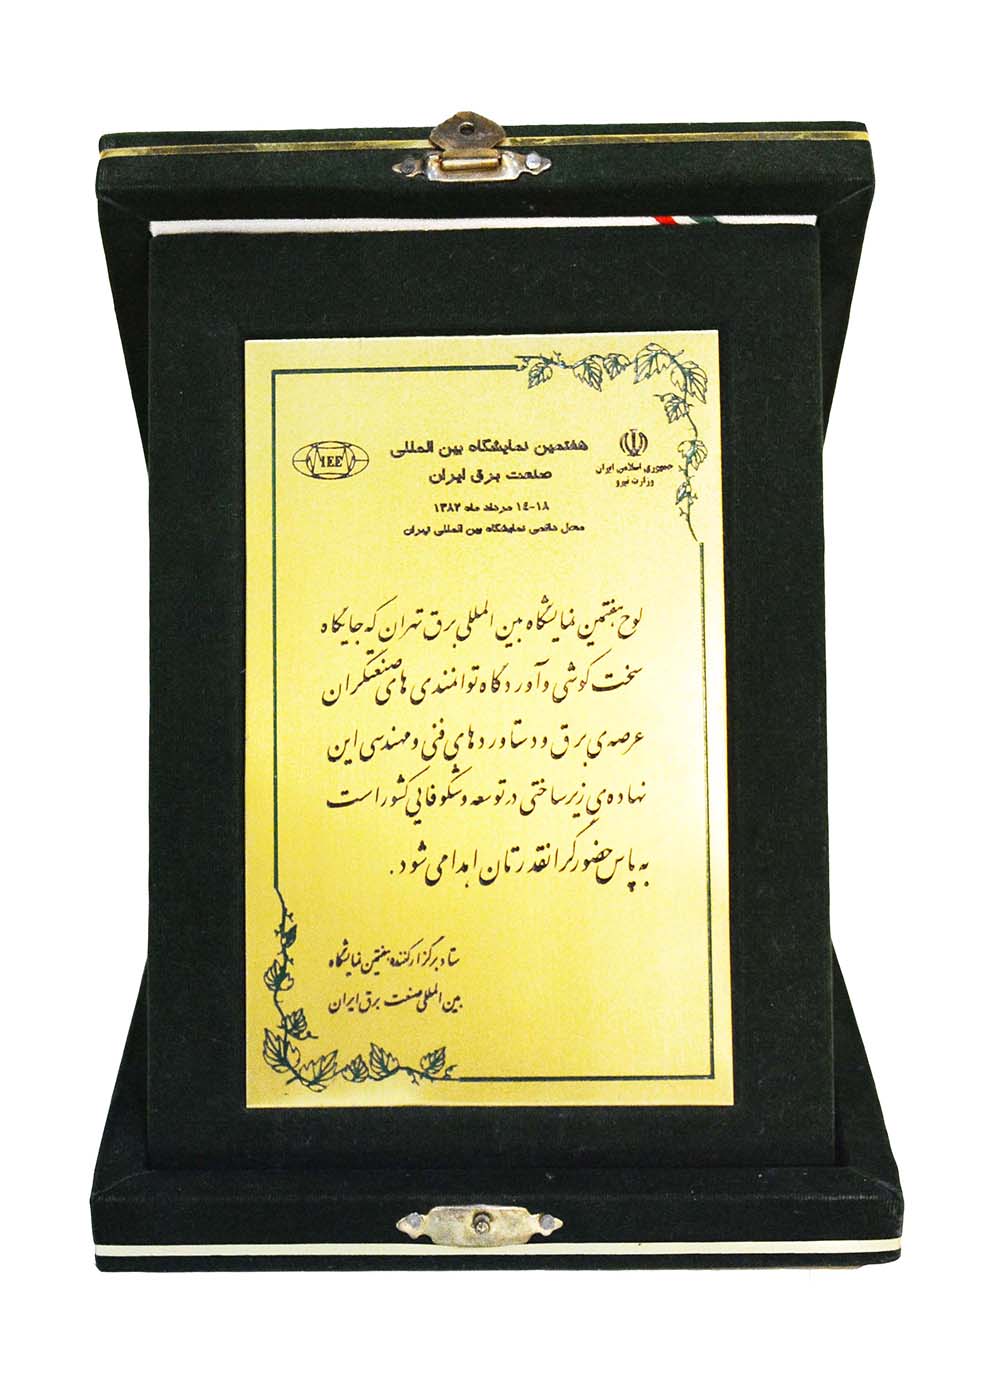 هفتمین نمایشگاه بین المللی
صنعت برق ایران
۱۴-۱۸ مرداد ماه ۱۳۸۲
محل دائمی نمایشگاه بین المللی تهران
جمهوری اسلامی ایران
وزارت نیرو
IEE
لوح هفتمین نمایشگاه بین المللی برق تهران که جایگاه
سخت کوشی و آوردگاه توانمندی های صنعتگران
عرصه‌ی برق و دستاوردهای فنی و مهندسی این
نهاده‌ی زیرساختی در توسعه و شکوفایی کشور است
به پاس حضور گرانقدرتان اهدا می شود.
ستاد برگزار کننده هفتمین نمایشگاه
بین المللی صنعت برق ایران